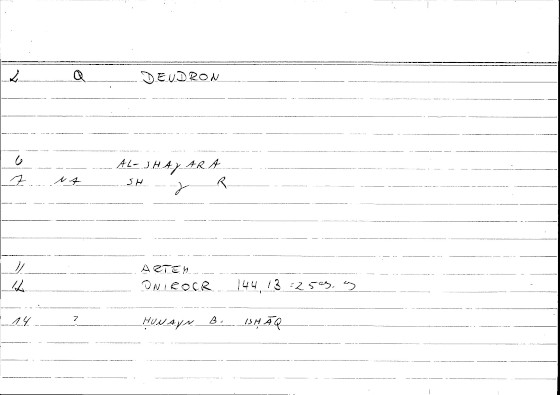 2 Q DEUDRON
6 AL-SHAȷARA
7 NA SH ȷ R
11 ARTEM
12 ONIROCR 144,13
14 ? ḤUNAYN B. ISḤĀQ